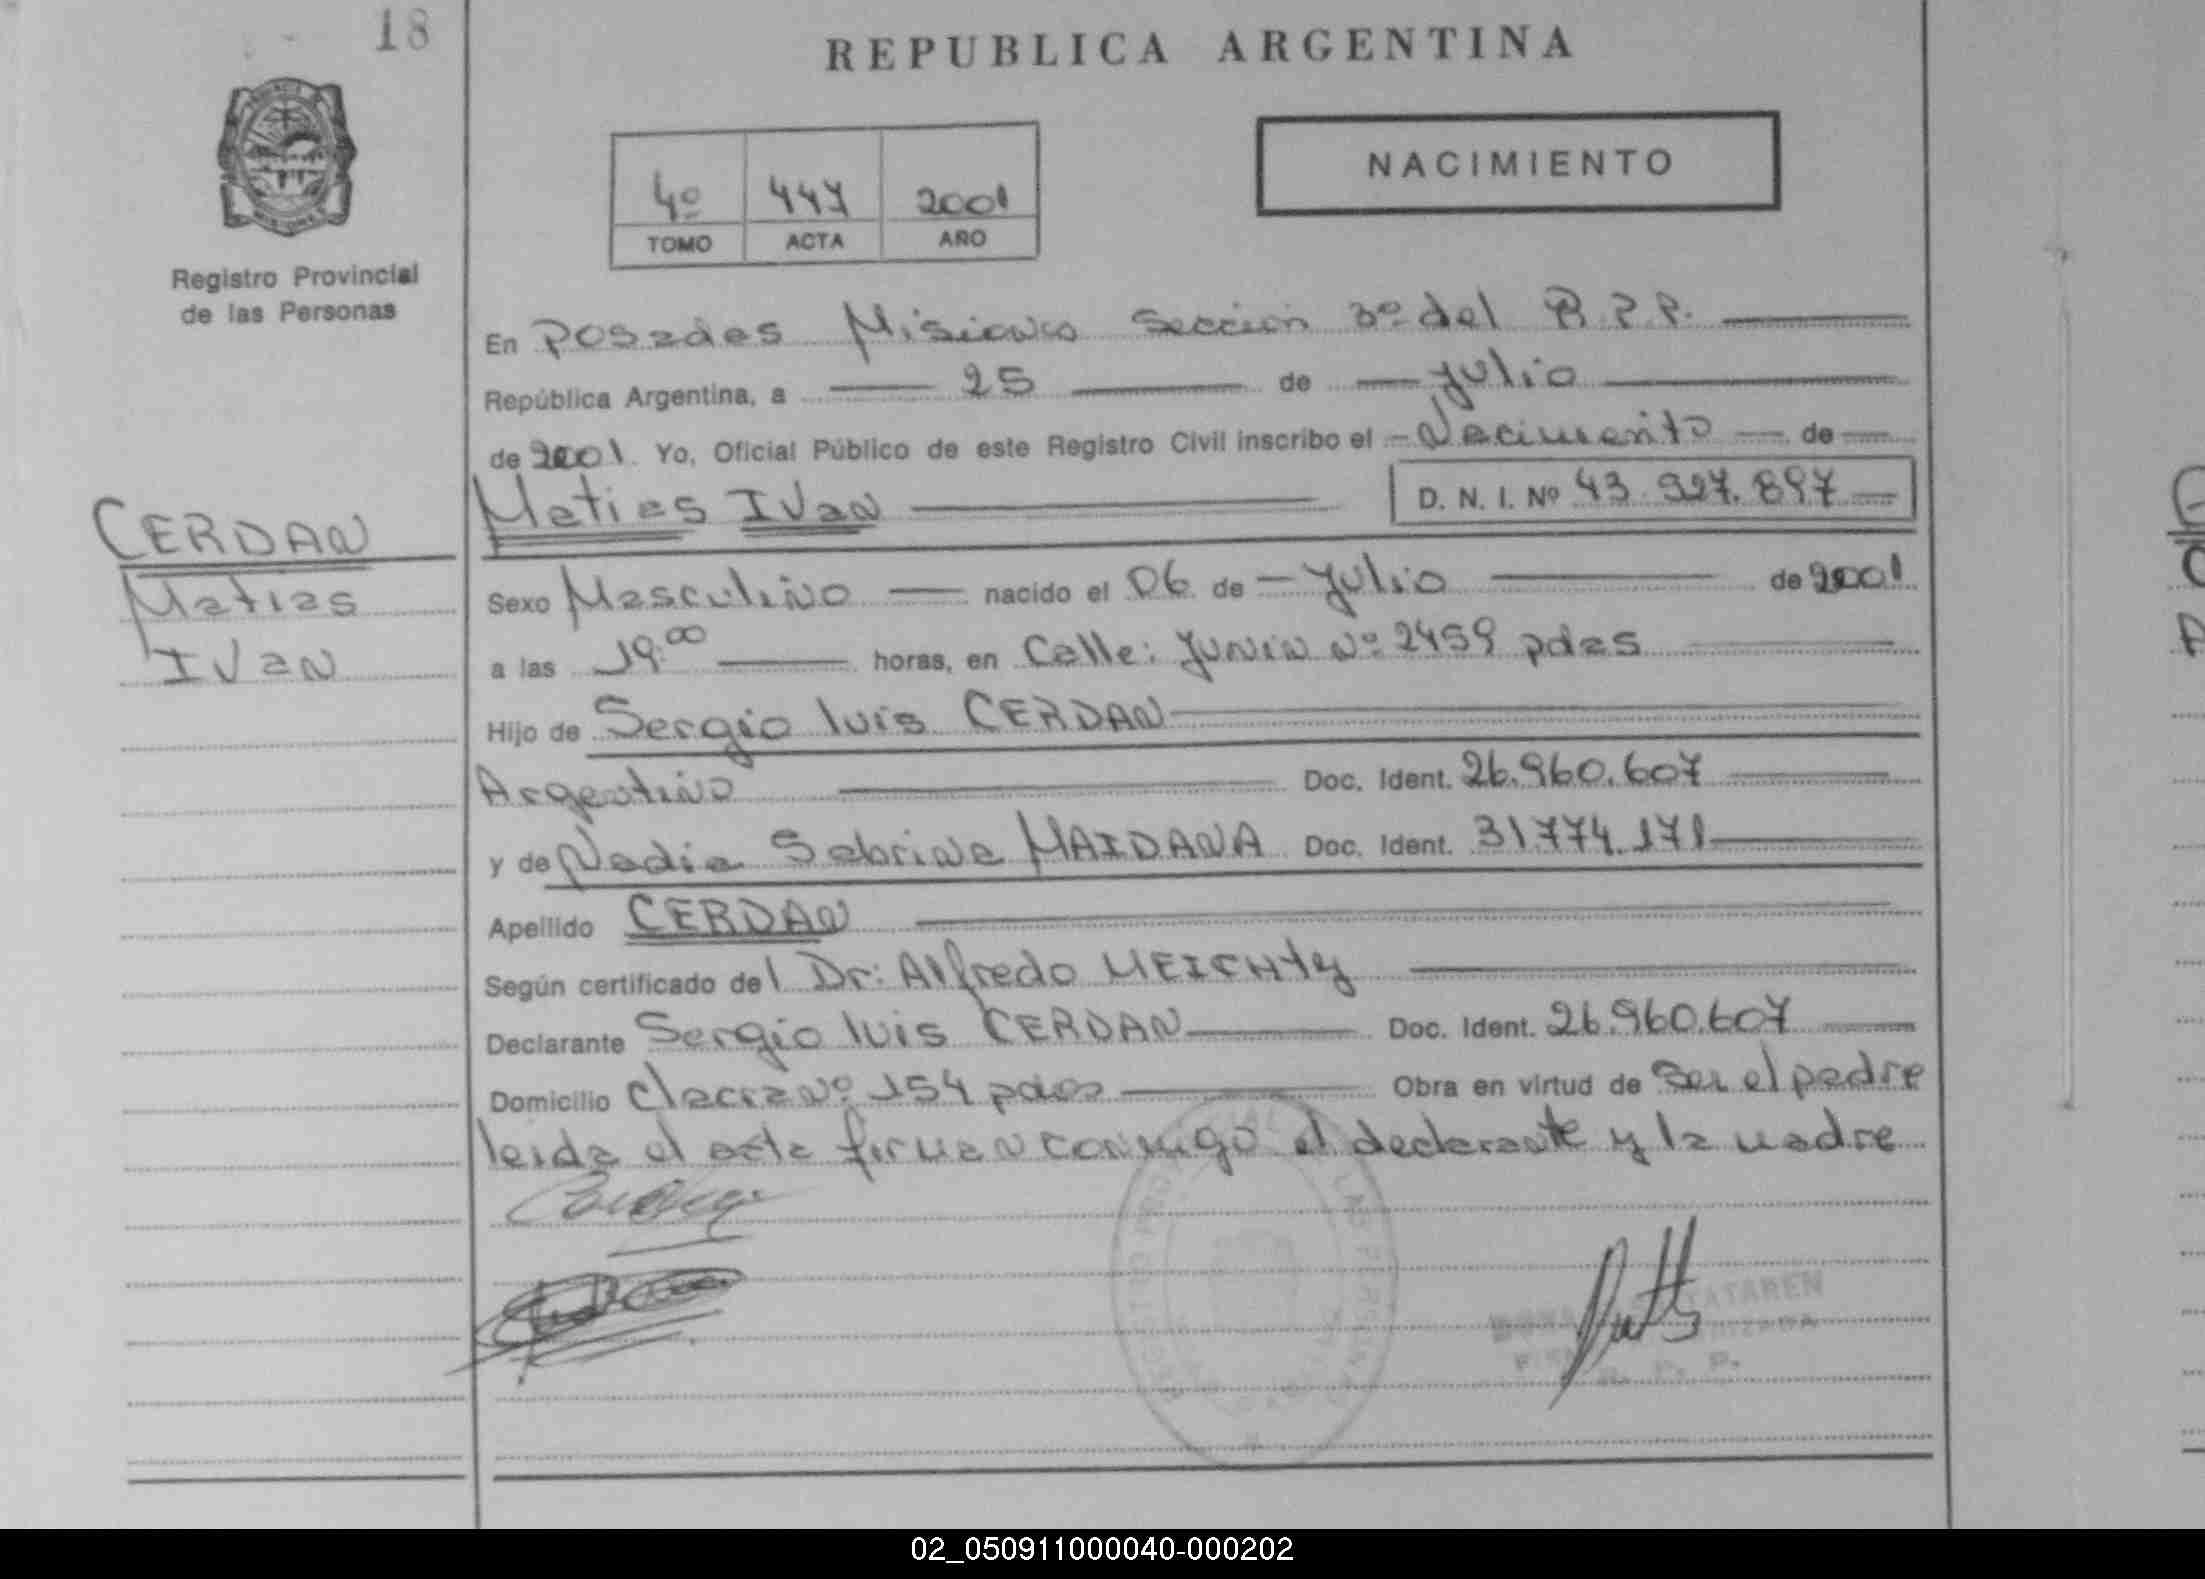 18
REPUBLICA ARGENTINA
NACIMIENTO
4º 447 2001
TOMO ACTA AÑO
Registro Provincial
de las Personas
En Posadas Misiones Sección 3º del R.P.P.
República Argentina, a 25 de Julio
de 2001. Yo, Oficial Público de este Registro Civil inscribo el Nacimiento de
Matias Ivan D. N. I. Nº 43.927.897
CERDAN
Matias
Ivan
Sexo Masculino nacido el 06 de Julio de 2001
a las 19:00 horas, en Calle: Junin Nº 2459 pdas
Hijo de Sergio luis CERDAN
Argentino Doc. Ident. 26.960.607
y de Nadia Sabrina MAIDANA Doc. Ident. 31.774.171
Apellido CERDAN
Según certificado del Dr: Alfredo
Declarante Sergio luis CERDAN Doc. Ident. 26.960.607
Domicilio Nº 154 pdas Obra en virtud de Ser el padre
leida el acta firman conmigo el declarante y la madre
R. P. P.
02_050911000040-000202